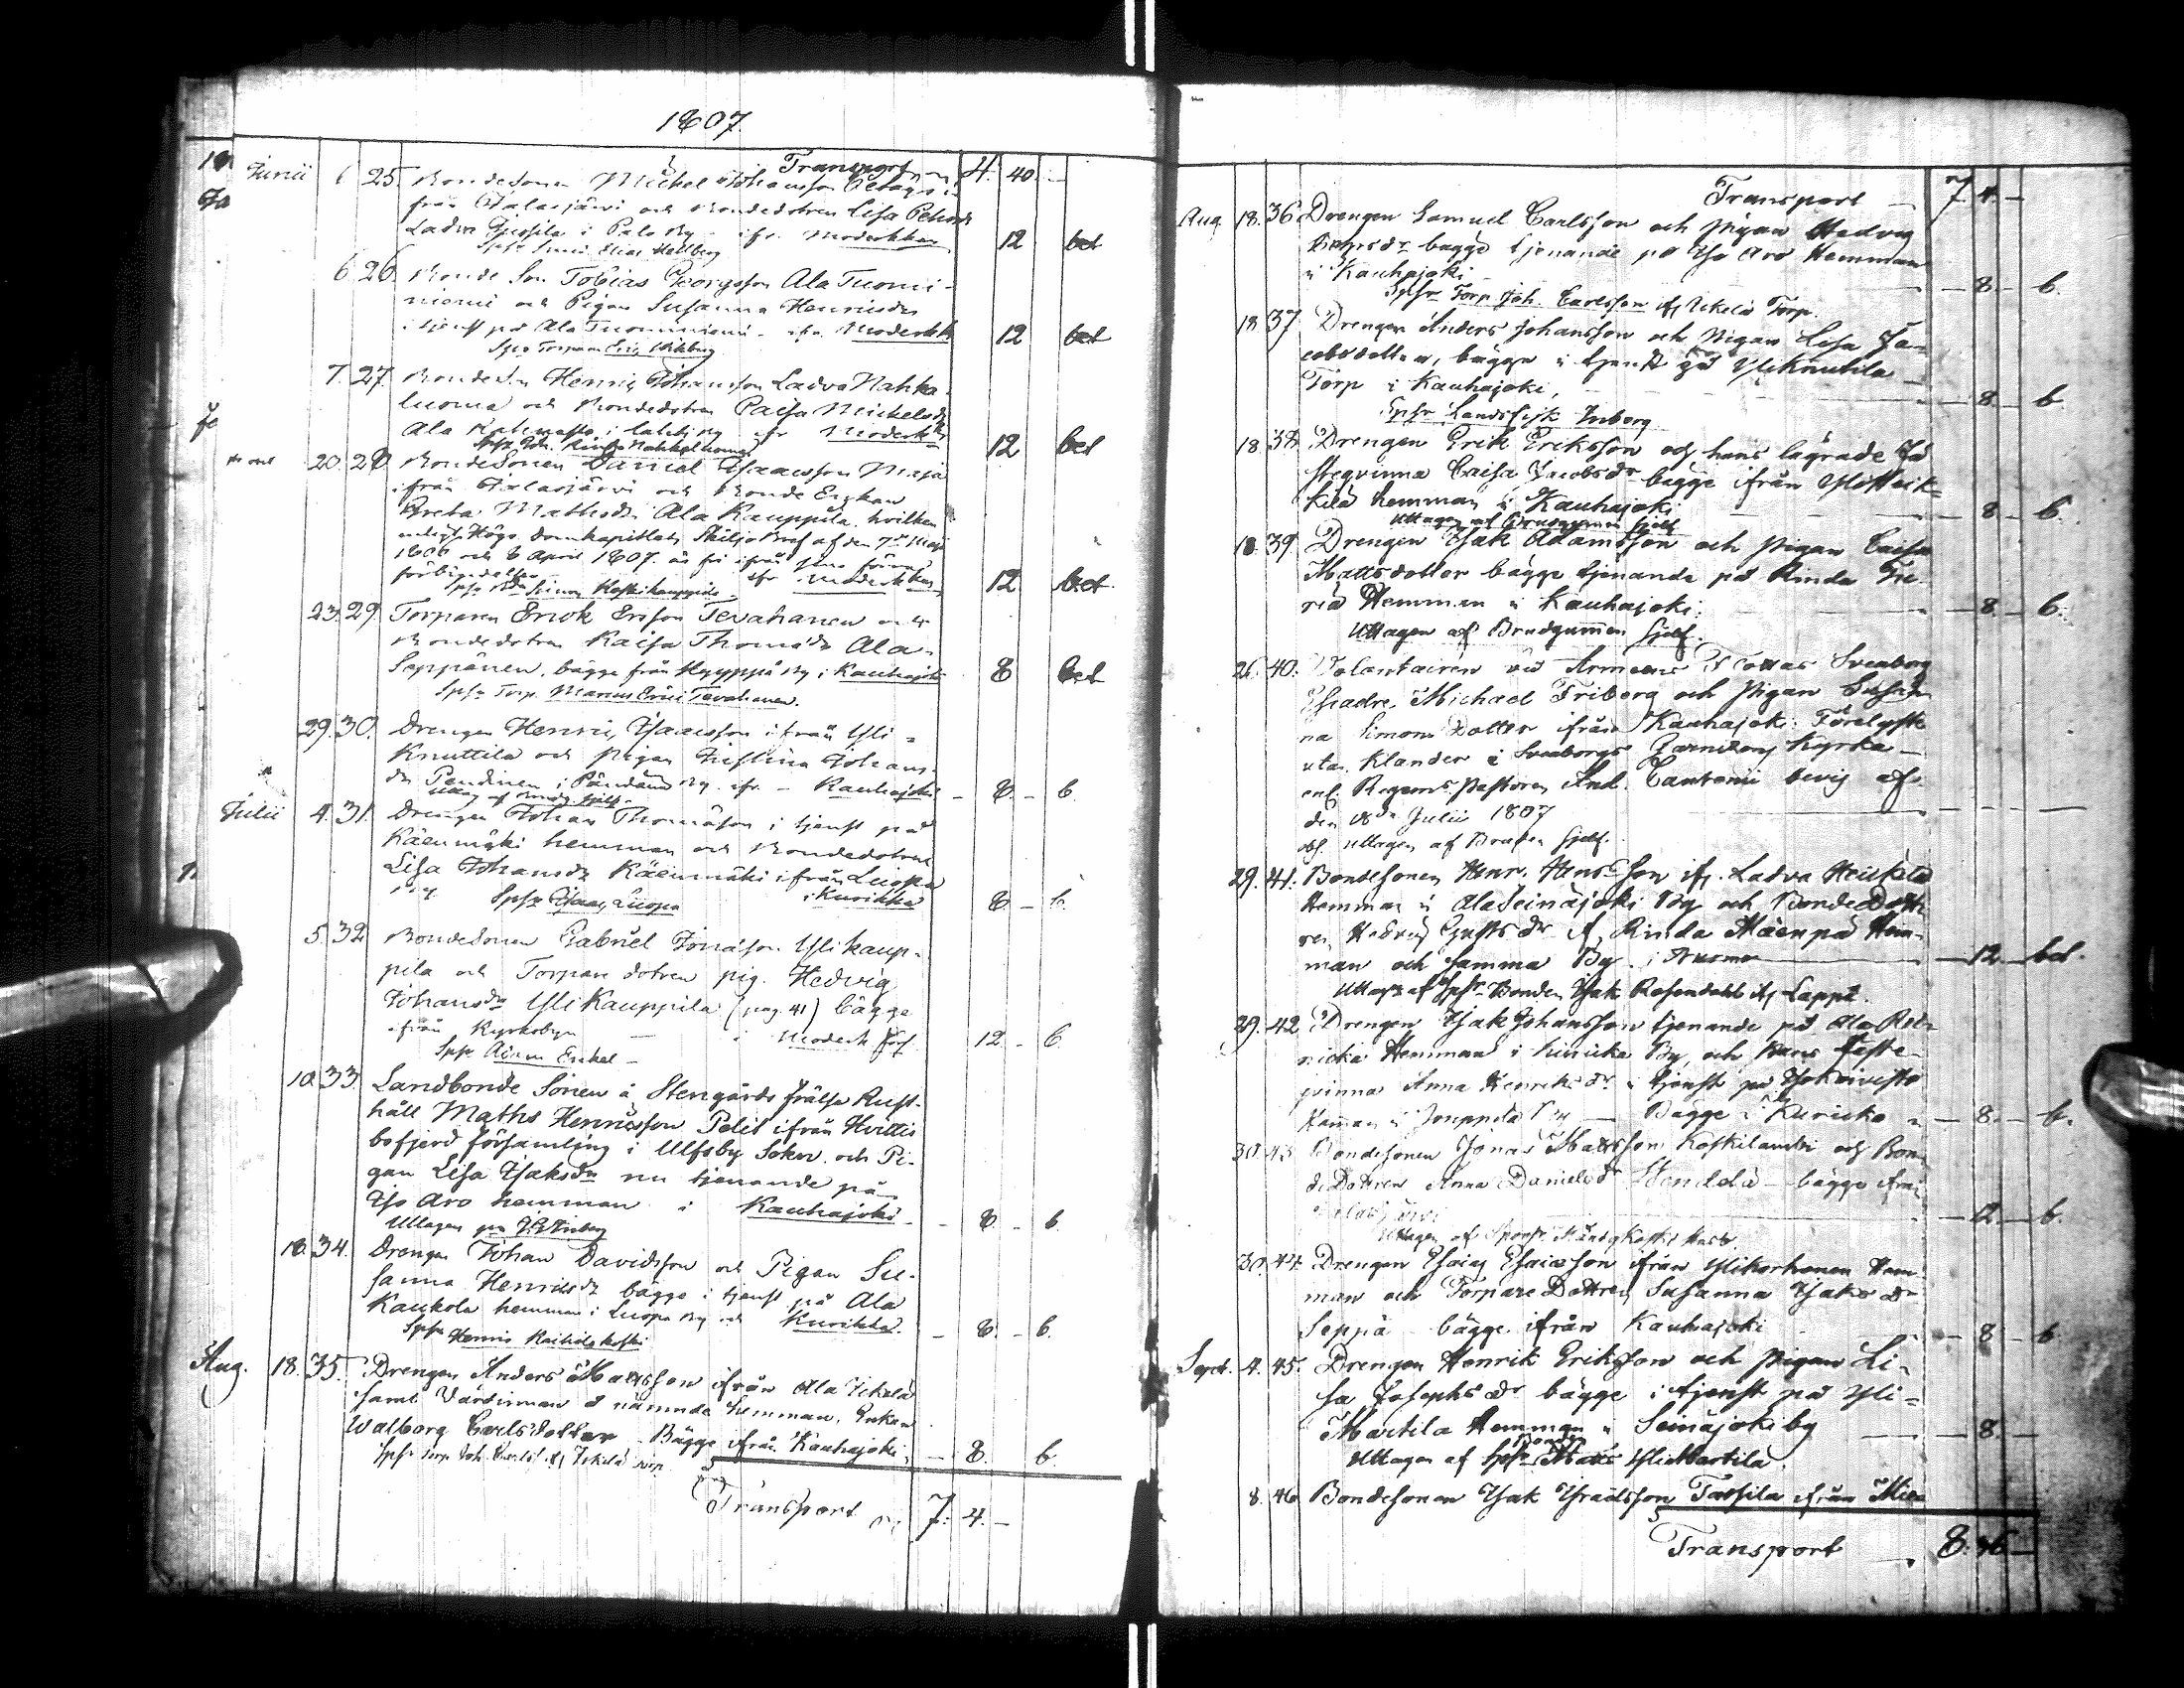 1807.
Transport 4. 40. —
Junii 6 25. Bondesonen Michel Johansson
från Jalasjärvi och Bondedotren Lisa
Ladva Jussila i Palo By ifr. Moderkkan 12 bet
Elias Hedberg
6. 26. Bonde Son Tobias Georgsson Ala Tuomi-
niemi och Pigan Susanna Henricsdr
i tjenst på Ala Tuominiemi - ifr. Moderkk 12 bet
Spr Torparen Eric Wikberg
7. 27. Bondeson Henric Johansson Ladva Nahka
luoma och Bondedotren Caisa Michelsdr
Ala By ifr Moderkk 12 bet
20. 28 Bondesonen Daniel Isaacsson Maja
ifrån Jalasjärvi och Bonde Enkan
Greta Mathsdr Ala Kauppila, hvilken
enligt Högv. Domkapitlets Skiljobref af den 7de Maji
och 8 April 1807. är fri ifrån sina förra
förbindelser ifr Moderkkan 12 bet.
23. 29. Torparen Erick Ersson Tevahanen och
Bondedotren Kaisa Thomædr Ala-
Seppänen, bägge från Hyyppä By i Kauhajoki 8 bet
Spr Torp. Marcus Tevahanen.
29. 30. Drengen Henric Isaacsson ifrån Yli-
Knuttila och Pigan Christina Johans-
dr i Päntäne By. ifr. — Kauhajoki — 8. — b.
Julii 4. 31. Drengen Johan Thomæson i tjenst på
Käenmäki hemman och Bondedotren
Lisa Johansdr Käenmäki ifrån Luopa
By Spr Isaac Luopa i Kurikka 8. — b.
5. 32 Bondesonen Gabriel Jonæson Ylikaup-
pila och Torpare dotren pig. Hedvig
Johansdr Ylikauppila (pag. 41) bägge
ifrån Kyrkobyn — i Moderk förs. 12 — b
Spr Adam Enkel —
10. 33. Landbonde Sonen å Stengårds frälse Rust-
håll Maths Henricsson Pelit ifrån Hvittis
bofjerd församling i Ulfsby Sokn och Pi-
gan Lisa Isaksdr nu tjenande på
Iso Aro hemman i Kauhajoki — 8. — b.
Uttagen
18. 34. Drengen Johan Davidsson och Pigan Su-
sanna Henricsdr bägge i tjenst på Ala
Kaukola hemman i Luopa By och Kurikka. — 8. — b.
Spr Henric
Aug. 18. 35. Drengen Anders Mattsson ifrån Ala Ickelä
samt Värdinnan å nämnde hemman, Enkan
Walborg Carlsdotter - Bägge ifrån Kauhajoki — 8. b.
Spr Torp Joh. Carlss. ifr Ickelä Torp
Transport 7. 4. —
Transport — 7. 4. —
Aug. 18. 36. Drengen Samuel Carlsson och Pigan Hedvig
bägge tjenande på Iso Aro Hemman
i Kauhajoki — 8 — b.
Spsr Torp. Joh. Carlsson ifr Ickelä Torp.
18 37 Drengen Anders Johansson och Pigan Lisa Ja-
cobsdotter, bägge i tjenst på Yliknutila
Torp i Kauhajoki, — 8. — b.
Spsr Landsfisk. Inberg
18. 38. Drengen Erik Eriksson och hans lägrade Fä
steqvinna Caisa Jacobsdr bägge ifrån
kilä hemman i Kauhajoki — 8 — b.
Uttagen af Brudgummen sjelf
18. 39. Drengen Isak Adamsson och Pigan Caisa
Mattsdotter bägge tjenande på Rinda
Hemman i Kauhajoki. — 8. — b.
Uttagen af Brudgummen sjelf.
26. 40. Volontairen vid Arméens Flottas Sveaborg
Escadre, Michael Friberg och Pigan Susan-
na Simons Dotter ifrån Kauhajoki: Förelyste
utan Klander i Sveaborgs Garnizons Kyrka —
enl. Regems. Pastoren And. Cantenii bevis af
den 18de Julii 1807 — — —
Uttagen af Bruden sjelf.
29. 41. Bondesonen Henr. Henrsson ifr. Ladva Heickilä
Hemman i Alaseinäjoki By och Bonde Dott-
ren Hedvig Gustsdr ifr Rinda Mäenpä Hem-
man och samma By. i Nurmo — 12. — bet.
Uttagen af Spsr Bonden Isak Rosendahl ifr Lappi.
29. 42 Drengen Isak Johansson tjenande på Ala
Hemman i By och hans fäste-
qvinna Anna Henriksdr i tjenst på
Hemman i Jouppila By — Bägge i Kuricka — 8. — b.
30. 43 Bondesonen Jonas Mattsson Koskilamki och Bon-
de Dottren Anna Danielsdr — bägge ifrån
Jalasjärvi — 12. — b.
30. 44. Drengen Esaias Esaiæsson ifrån Ylikorhonen Hem-
man och Torpare Dottren Susanna Isaksdr
Seppä - bägge ifrån Kauhajoki — 8 — b.
Sept. 4. 45. Drengen Henrik Eriksson och Pigan Li-
sa Josephsdr bägge i tjenst på Yli-
Martila Hemman i Seinäjoki by — 8 —
Uttagen af Spsr Bonden Matts Yli Martila.
8. 46. Bondesonen Isak Israëlsson Tassila ifrån
Transport — 8. 46 —